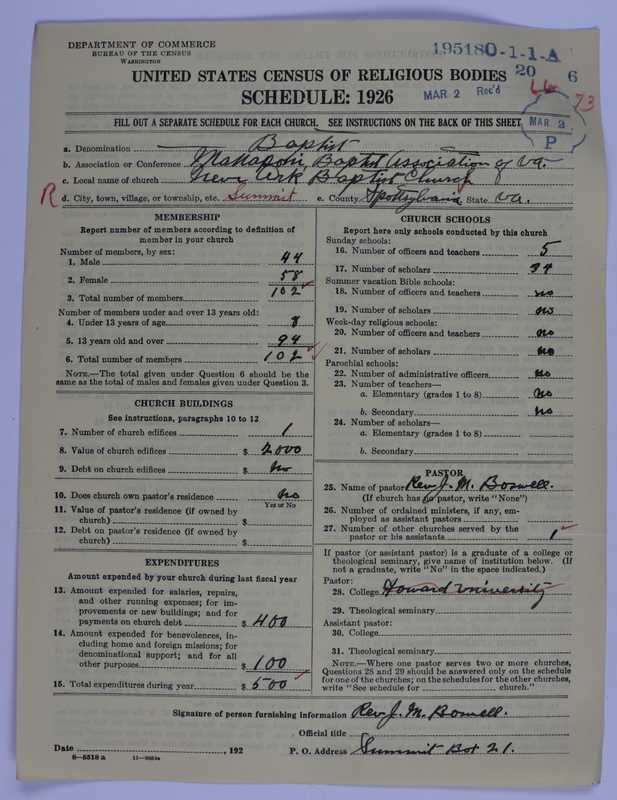 DEPARTMENT OF COMMERCE
BUREAU OF THE CENSUS
WASHINGTON
195180-1-1-A
20 6
UNITED STATES CENSUS OF RELIGIOUS BODIES
SCHEDULE: 1926
MAR 2 Rec'd
73
MAR 2
P
FILL OUT A SEPARATE SCHEDULE FOR EACH CHURCH. SEE INSTRUCTIONS ON THE BACK OF THIS SHEET
a. Denomination Baptist
b. Association or Conference Mattaponi Baptist Association of Va.
c. Local name of church Baptist Church
R d. City, town, village, or township, etc. Summit e. County Spottsylvania State Va.
MEMBERSHIP
Report number of members according to definition of member in your church
Number of members, by sex:
1. Male 44
2. Female 58
3. Total number of members 102
Number of members under and over 13 years old:
4. Under 13 years of age 8
5. 13 years old and over 94
6. Total number of members 102
NOTE.—The total given under Question 6 should be the same as the total of males and females given under Question 3.
CHURCH BUILDINGS
See instructions, paragraphs 10 to 12
7. Number of church edifices 1
8. Value of church edifices $ 2000
9. Debt on church edifices $ No
10. Does church own pastor's residence No
Yes or No
11. Value of pastor's residence (if owned by church) $
12. Debt on pastor's residence (if owned by church) $
EXPENDITURES
Amount expended by your church during last fiscal year
13. Amount expended for salaries, repairs, and other running expenses; for improvements or new buildings; and for payments on church debt $ 400
14. Amount expended for benevolences, including home and foreign missions; for denominational support; and for all other purposes $ 100
15. Total expenditures during year $ 500
CHURCH SCHOOLS
Report here only schools conducted by this church
Sunday schools:
16. Number of officers and teachers 5
17. Number of scholars 34
Summer vacation Bible schools:
18. Number of officers and teachers no
19. Number of scholars no
Week-day religious schools:
20. Number of officers and teachers no
21. Number of scholars no
Parochial schools:
22. Number of administrative officers no
23. Number of teachers—
a. Elementary (grades 1 to 8) no
b. Secondary no
24. Number of scholars—
a. Elementary (grades 1 to 8)
b. Secondary
PASTOR
25. Name of pastor Rev. J. M. Boswell.
(If church has no pastor, write "None")
26. Number of ordained ministers, if any, employed as assistant pastors
27. Number of other churches served by the pastor or his assistants 1
If pastor (or assistant pastor) is a graduate of a college or theological seminary, give name of institution below. (If not a graduate, write "No" in the space indicated.)
Pastor:
28. College Howard University
29. Theological seminary
Assistant pastor:
30. College
31. Theological seminary
NOTE.—Where one pastor serves two or more churches, Questions 28 and 29 should be answered only on the schedule for one of the churches; on the schedules for the other churches, write "See schedule for church."
Signature of person furnishing information Rev. J. M. Boswell.
Official title
Date , 192 P. O. Address Summit Box 21.
8-5518a 11-9054a